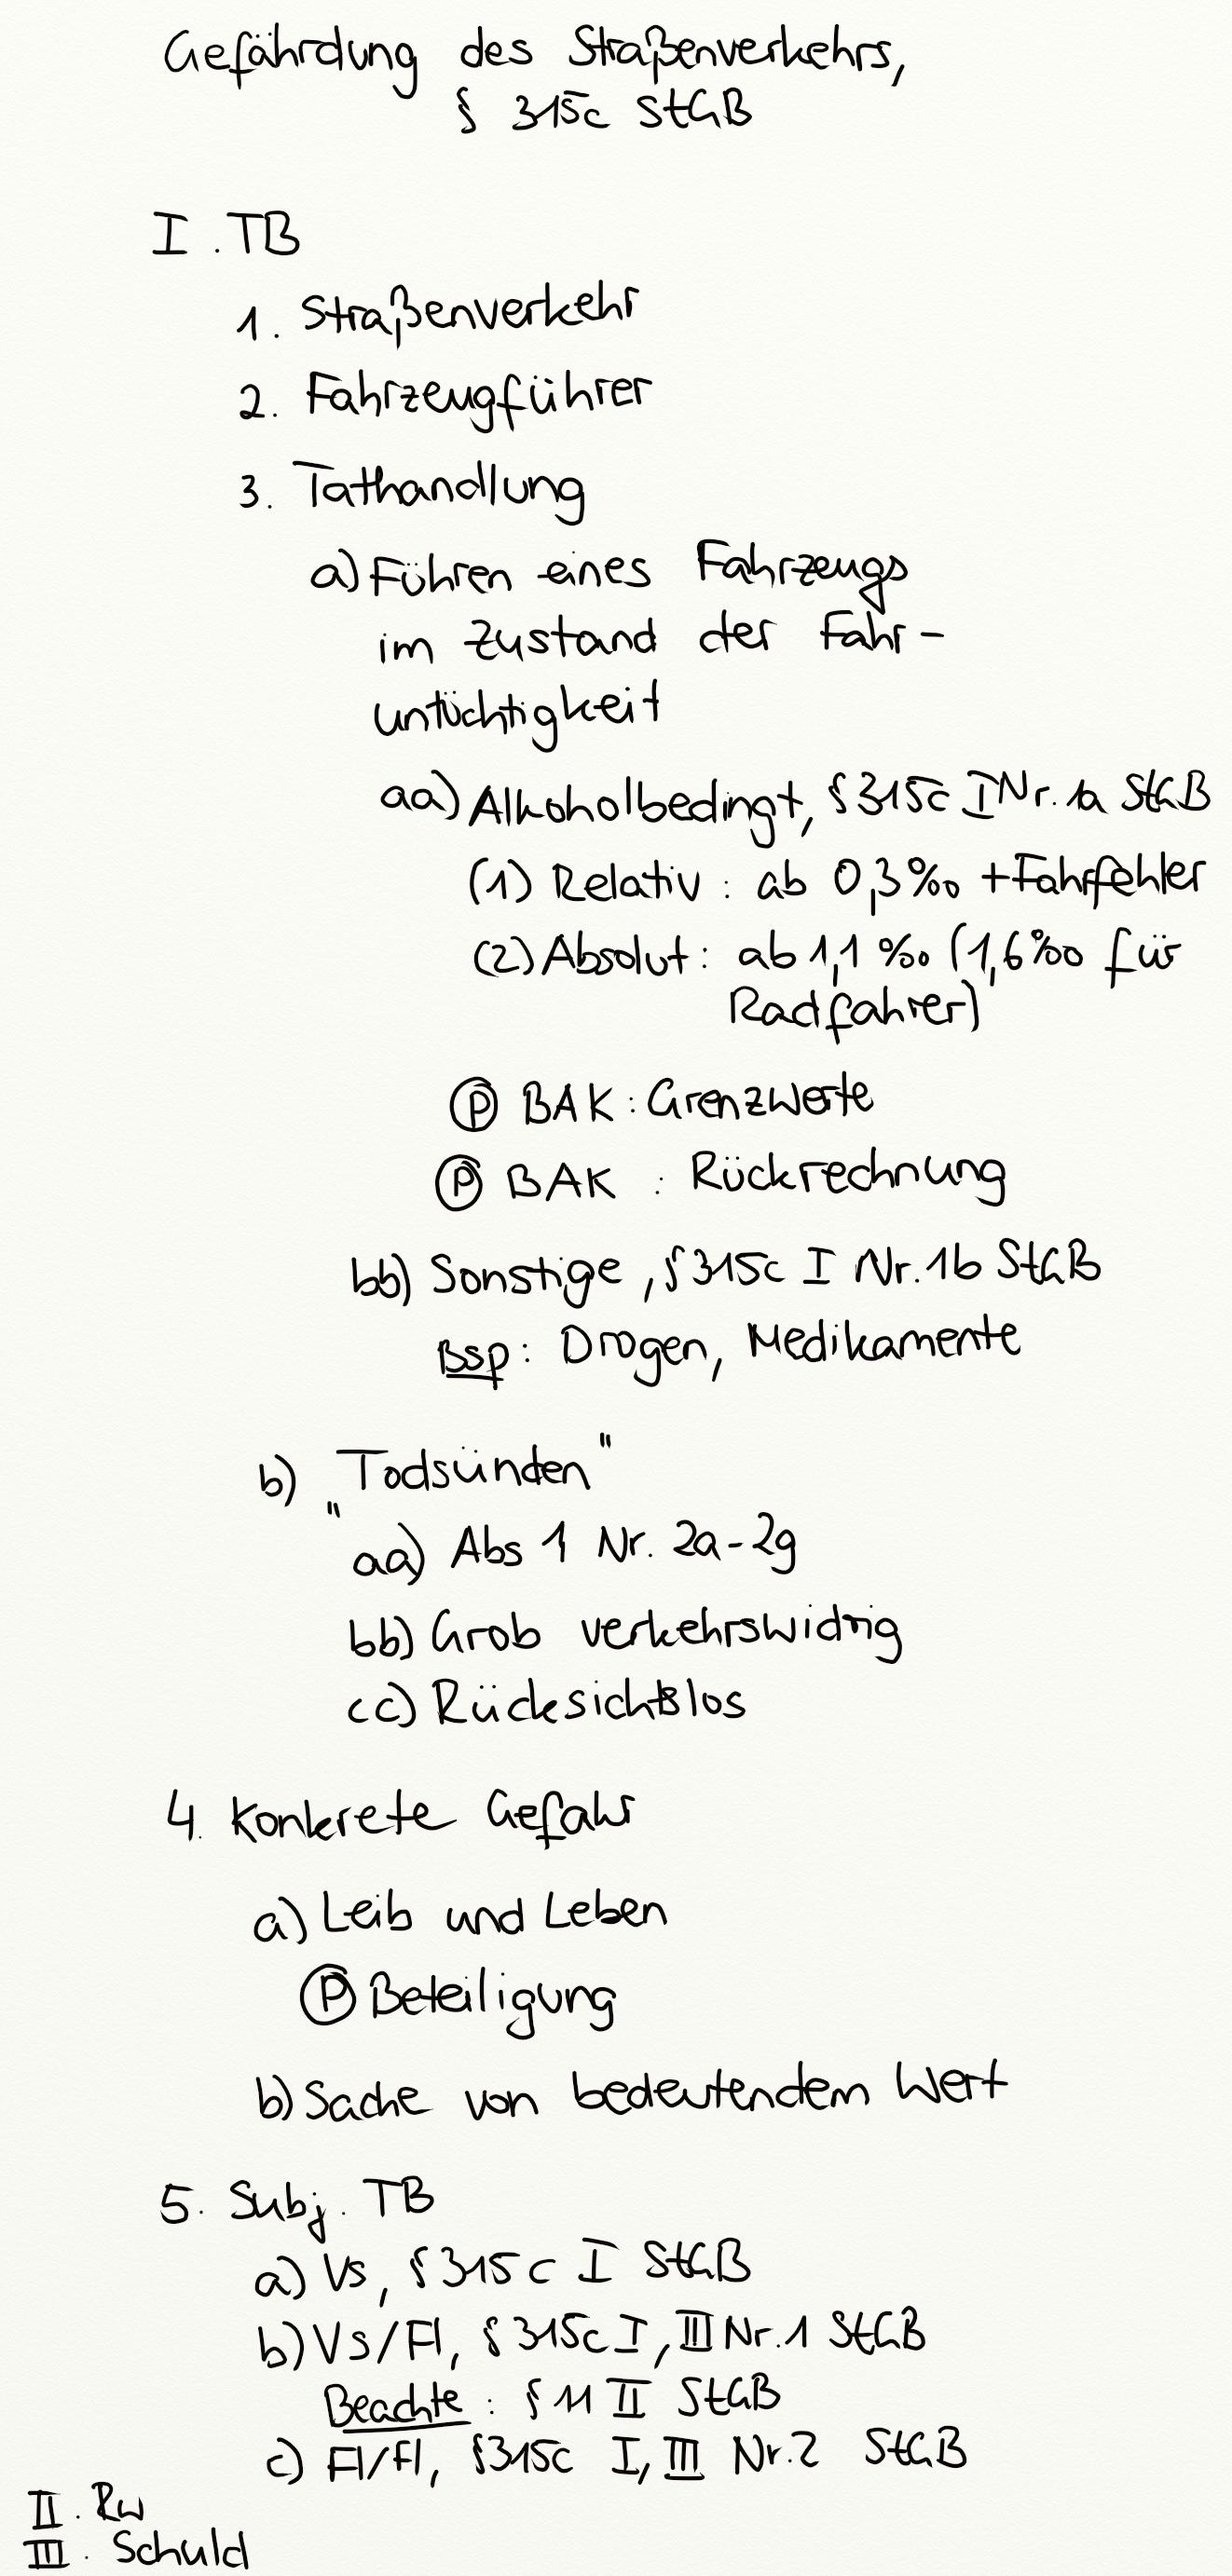 Gefährdung des Straßenverkehrs,
§ 315c StGB
I. TB
1. Straßenverkehr
2. Fahrzeugführer
3. Tathandlung
a) Führen eines Fahrzeugs
im Zustand der Fahr-
untüchtigkeit
aa) Alkoholbedingt, § 315c I Nr. 1a StGB
(1) Relativ: ab 0,3‰ + Fahrfehler
(2) Absolut: ab 1,1 ‰ (1,6‰ für
Radfahrer)
Ⓟ BAK: Grenzwerte
Ⓟ BAK: Rückrechnung
bb) Sonstige, § 315c I Nr. 1b StGB
Bsp: Drogen, Medikamente
b) "Todsünden"
aa) Abs 1 Nr. 2a-2g
bb) Grob verkehrswidrig
cc) Rücksichtslos
4. Konkrete Gefahr
a) Leib und Leben
Ⓟ Beteiligung
b) Sache von bedeutendem Wert
5. Subj. TB
a) Vs, § 315c I StGB
b) Vs/Fl, § 315c I, III Nr. 1 StGB
Beachte: § 11 II StGB
c) Fl/Fl, § 315c I, III Nr. 2 StGB
II. Rw
III. Schuld